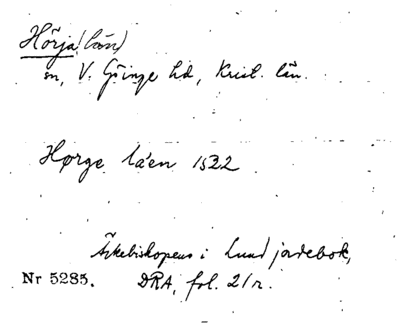 Hörja (län)
sn, V. Göinge hd, Krist. län.
Hørge láen 1522
Ärkebiskopens i Lund jordebok,
Nr 5285. DRA, fol. 21r.